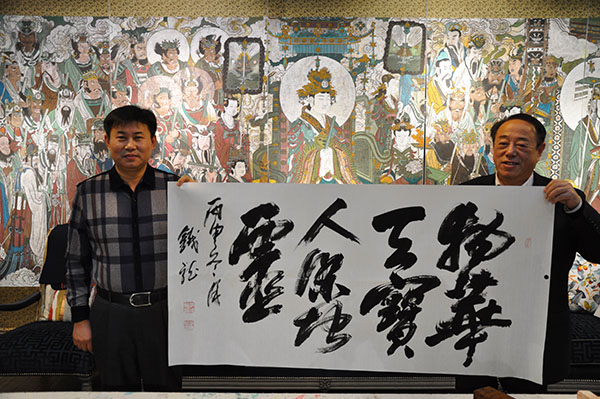 物華
天寶
人傑地
靈
丙申冬月
鐵